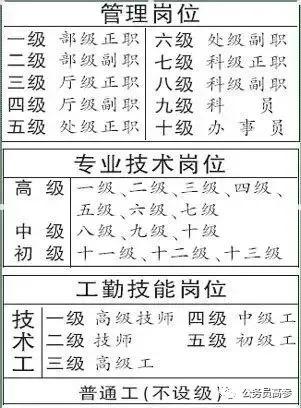 管理岗位
一级 部级正职 六级 处级副职
二级 部级副职 七级 科级正职
三级 厅级正职 八级 科级副职
四级 厅级副职 九级 科 员
五级 处级正职 十级 办 事 员
专业技术岗位
高 级 一级、二级、三级、四级、
五级、六级、七级
中 级 八级、九级、十级
初 级 十一级、十二级、十三级
工勤技能岗位
技 一级 高级技师 四级 中级工
术 二级 技师 五级 初级工
工 三级 高级工
普通工(不设级)
公务员高参